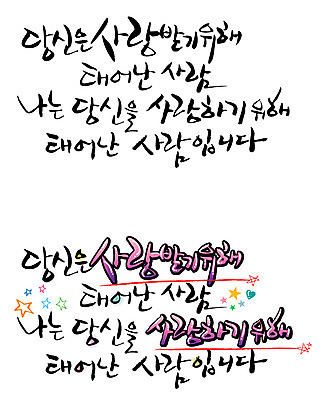 당신은 사랑받기위해
태어난 사람
나는 당신을 사랑하기위해
태어난 사람입니다
당신은 사랑받기위해
태어난 사람
나는 당신을 사랑하기위해
태어난 사람입니다